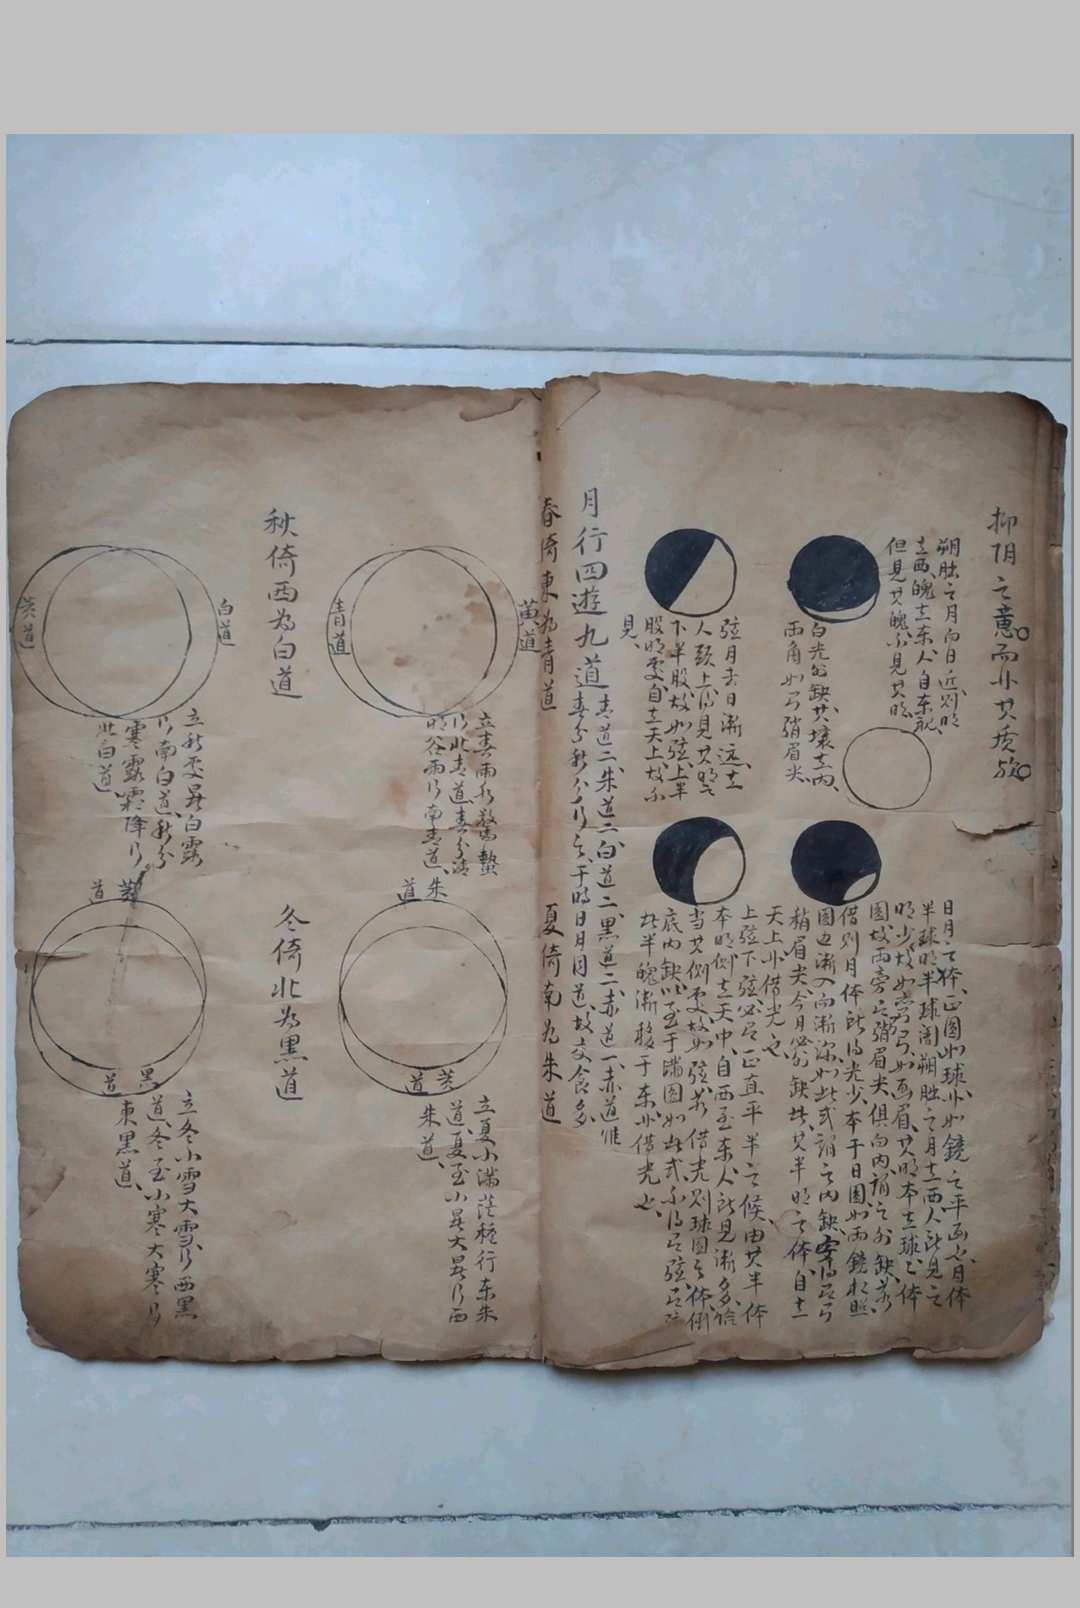 抑阴之意而非其质殆
朔朏之月向日近则明
在西魄在东人自东视
但見其魄不見其明
白光外缺其壞在内
两角如弓弰眉尖
弦月去日漸远在
人頸上只見其明之
下半股故如弦上半
股明处自在天上故不
見
日月之体正圆如球非如鏡之平面也月体
半球明半球闇朔朏之月在西人所見之
明少故如弯弓如画眉其明本在球之体
圆故两旁之弰眉尖俱向内谓之外缺若
借则月体所得光少本于日圆如两鏡相照
圆边漸入而漸深如此式谓之内缺安得名弓
稍眉尖今月必外缺此其半明之体自在
天上非借光也
上弦下弦必名正直平半之候由其半体
本明倒在天中自西至东人所見漸多恰
当其倒处故如弦若借光则球圆之体倒
底内缺以至于满圆如此式不得名弦
此半魄漸移于东非借光也
月行四遊九道
青道二朱道二白道二黑道二赤道一赤道惟
春分秋分行之于時日月同道故交食多
春倚東為青道
夏倚南為朱道
黄道
青道
立春雨水驚蟄
行北青道春分清
明谷雨行南青道
朱道
黄道
立夏小满芒種行东朱
道夏至小暑大暑行西
朱道
秋倚西為白道
冬倚北為黑道
白道
黄道
立秋处暑白露
行南白道秋分
寒露霜降行
北白道
黄道
黑道
立冬小雪大雪行西黑
道冬至小寒大寒行
東黑道